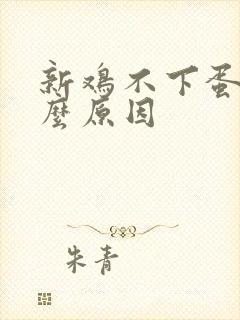 新鸡不下蛋
麼原因
朱青